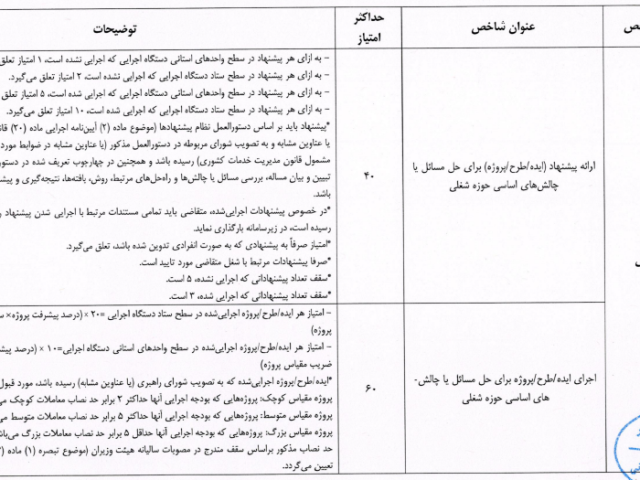 ص
عنوان شاخص
حداکثر
امتیاز
توضیحات
ارائه پیشنهاد (ایده/طرح/پروژه) برای حل مسائل یا
چالش‌های اساسی حوزه شغلی
۴۰
- به ازای هر پیشنهاد در سطح واحدهای استانی دستگاه اجرایی که اجرایی نشده است، ۱ امتیاز تعلق
- به ازای هر پیشنهاد در سطح ستاد دستگاه اجرایی که اجرایی نشده است، ۲ امتیاز تعلق می‌گیرد.
- به ازای هر پیشنهاد در سطح واحدهای استانی دستگاه اجرایی که اجرایی شده است، ۵ امتیاز تعلق
- به ازای هر پیشنهاد در سطح ستاد دستگاه اجرایی که اجرایی شده است، ۱۰ امتیاز تعلق می‌گیرد.
*پیشنهاد باید بر اساس دستورالعمل نظام پیشنهادها (موضوع ماده (۲) آیین‌نامه اجرایی ماده (۲۰) قا
یا عناوین مشابه و به تصویب شورای مربوطه در دستورالعمل مذکور (یا عناوین مشابه در ضوابط مورد
مشمول قانون مدیریت خدمات کشوری) رسیده باشد و همچنین در چهارچوب تعریف شده در دستور
تبیین و بیان مساله، بررسی مسائل یا چالش‌ها و راه‌حل‌های مرتبط، روش، یافته‌ها، نتیجه‌گیری و پیش
باشد.
*در خصوص پیشنهادات اجرایی‌شده، متقاضی باید تمامی مستندات مرتبط با اجرایی شدن پیشنهاد ر
رسیده است، در زیرسامانه بارگذاری نماید.
*امتیاز صرفاً به پیشنهادی که به صورت انفرادی تدوین شده باشد، تعلق می‌گیرد.
*صرفا پیشنهادات مرتبط با شغل متقاضی مورد تایید است.
*سقف تعداد پیشنهاداتی که اجرایی نشده، ۵ است.
*سقف تعداد پیشنهاداتی که اجرایی شده، ۳ است.
اجرای ایده/طرح/پروژه برای حل مسائل یا چالش-
های اساسی حوزه شغلی
۶۰
- امتیاز هر ایده/طرح/پروژه اجرایی‌شده در سطح ستاد دستگاه اجرایی =۲۰ × (درصد پیشرفت پروژه×
پروژه)
- امتیاز هر ایده/طرح/پروژه اجرایی‌شده در سطح واحدهای استانی دستگاه اجرایی=۱۰ × (درصد پیش
ضریب مقیاس پروژه)
*ایده/طرح/پروژه اجرایی‌شده که به تصویب شورای راهبری (یا عناوین مشابه) رسیده باشد، مورد قبول
پروژه مقیاس کوچک: پروژه‌هایی که بودجه اجرایی آنها حداکثر ۲ برابر حد نصاب معاملات کوچک می
پروژه مقیاس متوسط: پروژه‌هایی که بودجه اجرایی آنها حداکثر ۵ برابر حد نصاب معاملات متوسط می
پروژه مقیاس بزرگ: پروژه‌هایی که بودجه اجرایی آنها حداقل ۵ برابر حد نصاب معاملات بزرگ می‌باش
حد نصاب مذکور براساس سقف مندرج در مصوبات سالیانه هیئت وزیران (موضوع تبصره (۱) ماده (
تعیین می‌گردد.